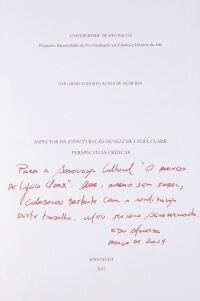 UNIVERSIDADE DE SÃO PAULO
Programa Interunidades de Pós-Graduação em Estética e História da Arte
EDUARDO AUGUSTO ALVES DE ALMEIDA
ASPECTOS DA ESTRUTURAÇÃO DO SELF DE LYGIA CLARK:
PERSPECTIVAS CRÍTICAS
Para a Associação Cultural "O mundo
de Lygia Clark". Que, mesmo sem saber,
colaborou bastante com a realização
deste trabalho. Meu sincero agradecimento.
Edu Almeida
março de 2014
SÃO PAULO
2013